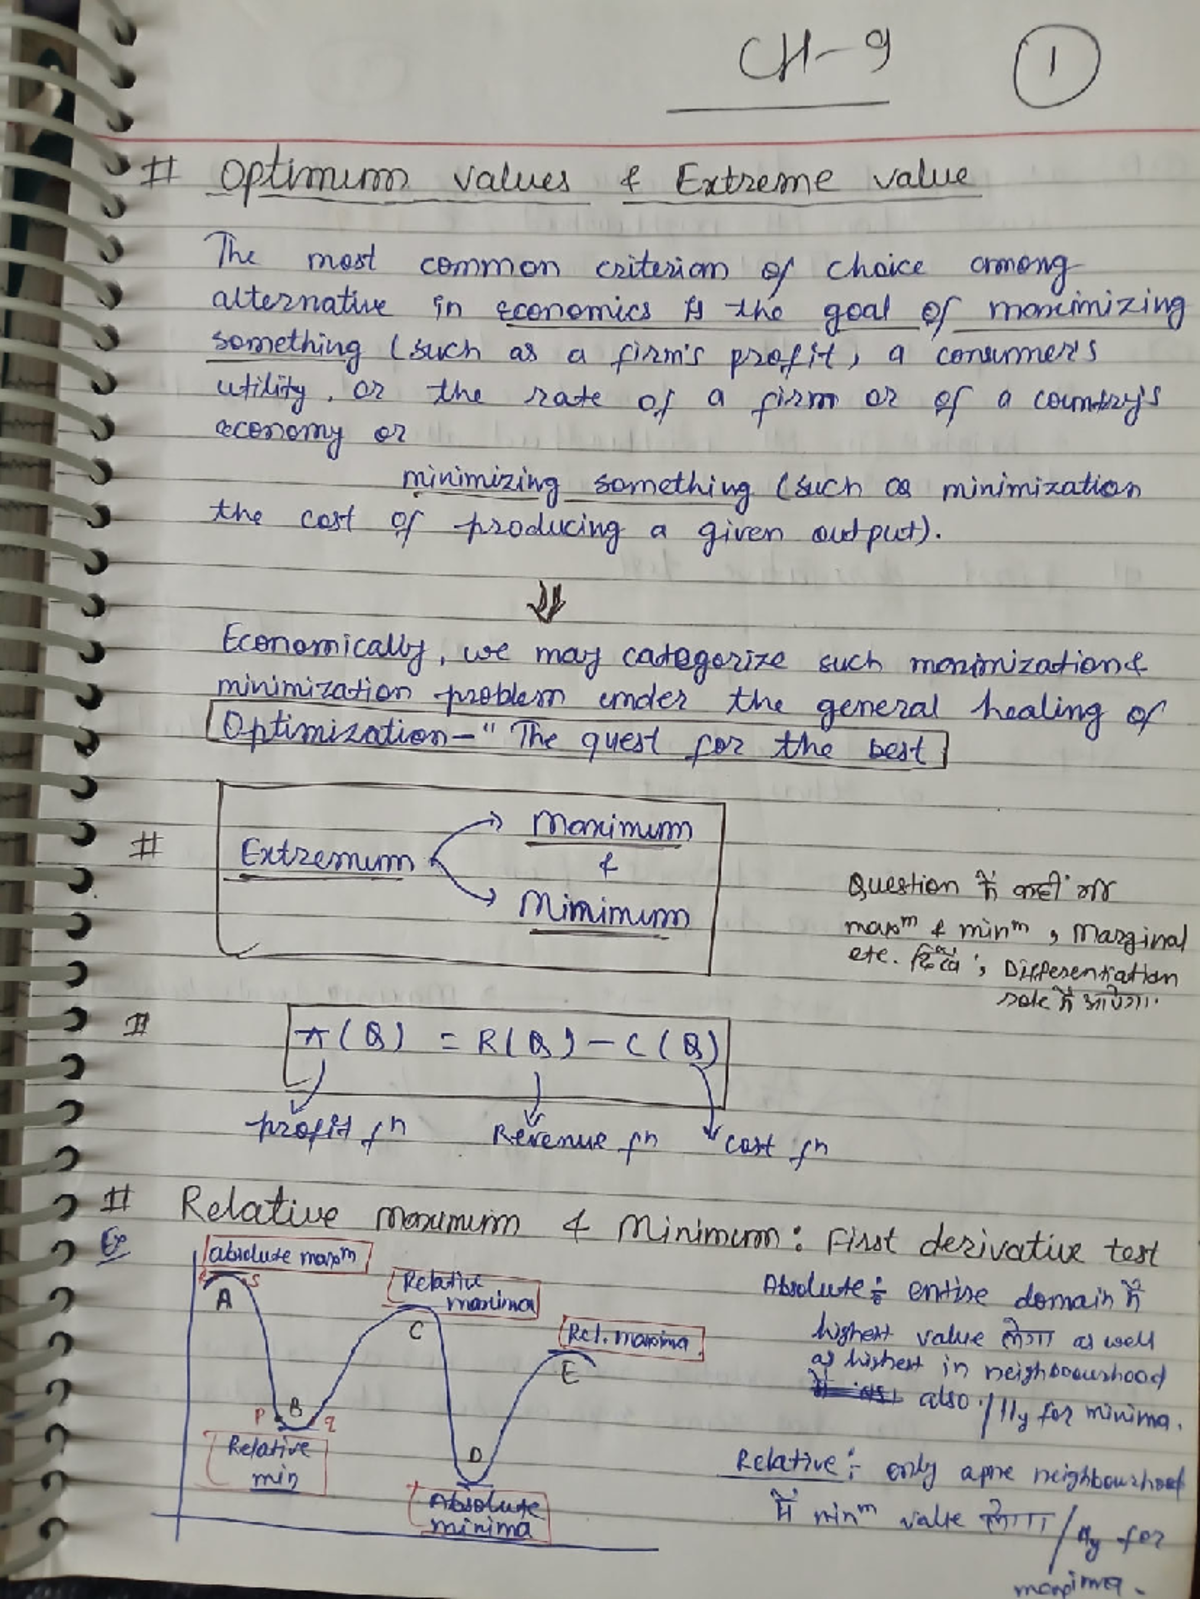 CH-9
1
# Optimum values & Extreme value
The most common criterion of choice among
alternative in economics is the goal of maximizing
something (such as a firm's profit, a consumer's
utility, or the rate of a firm or of a country's
economy or
minimizing something (such as minimization
the cost of producing a given output).
Economically, we may categorize such maximization &
minimization problem under the general healing of
Optimization - " The quest for the best
# Extremum
Maximum
&
Minimum
Question में कहीं पर
maxᵐ & minᵐ, Marginal
etc. दिखे, Differentiation
role में आयेगा.
# π(Q) = R(Q) - C(Q)
profit fⁿ Revenue fⁿ cost fⁿ
# Relative maximum & Minimum: First derivative test
Ex
absolute maxᵐ
S
A
Relative
maxima
C
Rel. maxima
E
P B q
Relative
min
D
Absolute
minima
Absolute :- entire domain में
highest value लेगा as well
as highest in neighbourhood
also / lly for minima.
Relative :- only apne neighbourhood
में minᵐ value लेगा / lly for
maxima.